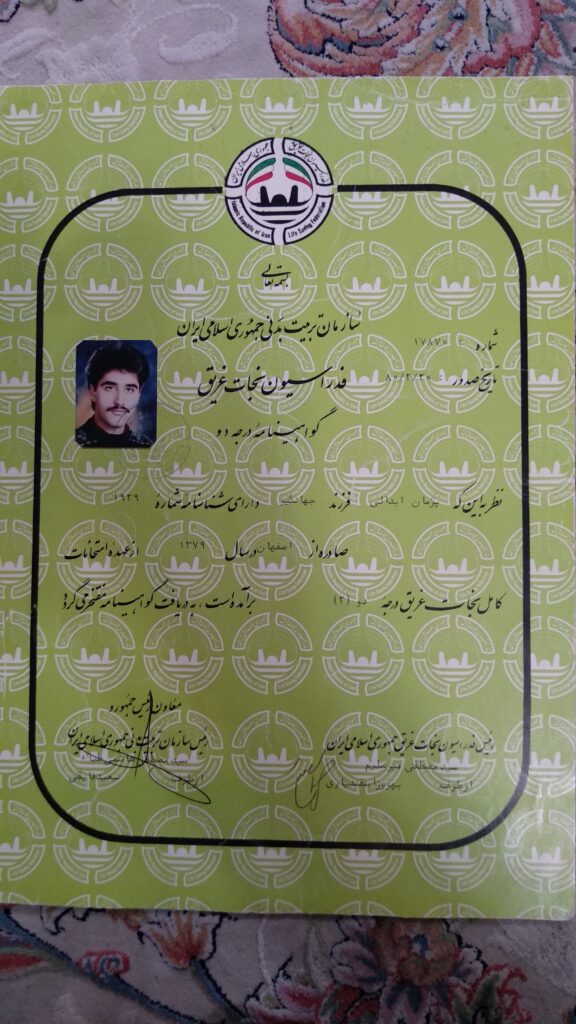 جمهوری اسلامی ایران
Islamic Republic of Iran
Life Saving Federation
بسمه تعالی
سازمان تربیت بدنی جمهوری اسلامی ایران
شماره : ۱۷۸۷۰
فدراسیون نجات غریق
تاریخ صدور : ۸۰/۲/۲۰
گواهینامه درجه دو
نظر به اینکه پژمان ابدالی فرزند جهانگیر دارای شناسنامه شماره ۱۹۲۹
صادره از اصفهان در سال ۱۳۷۹ از عهده امتحانات
کامل نجات غریق درجه دو (۲) برآمده است ، به دریافت گواهینامه مفتخر می گردد
معاون رئیس جمهور و
رئیس سازمان تربیت بدنی جمهوری اسلامی ایران
از طرف
رئیس فدراسیون نجات غریق جمهوری اسلامی ایران
سید مصطفی میرسلیم
از طرف